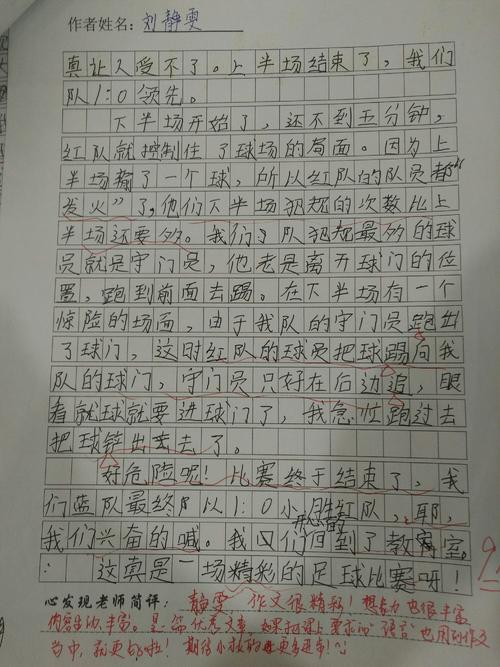 作者姓名: 刘静雯
真让人受不了。上半场结束了，我们
队1:0领先。
下半场开始了，还不到五分钟，
红队就控制住了球场的局面。因为上
半场输了一个球，所以红队的队员都“
发火”了，他们下半场犯规的次数比上
半场还要多。我们队犯规最多的球
员就是守门员，他老是离开球门的位
置，跑到前面去踢。在下半场有一个
惊险的场面，由于我队的守门员跑出
了球门，这时红队的球员把球踢向我
队的球门，守门员只好在后边追，眼
看就球就要进球门了，我急忙跑过去
把球 出去了。
好危险呢！比赛终于结束了，我
们蓝队最终以1:0小胜红队，耶，
我们兴奋的喊。我们开心的回到了教室。
这真是一场精彩的足球比赛呀！
心发现老师简评：静雯，作文很精彩！想象力也很丰富
内容生动、丰富。是一篇优秀文章，如果把课上要求的“语言”也用到作文
当中，就更好啦！期待小孩的更多进步！